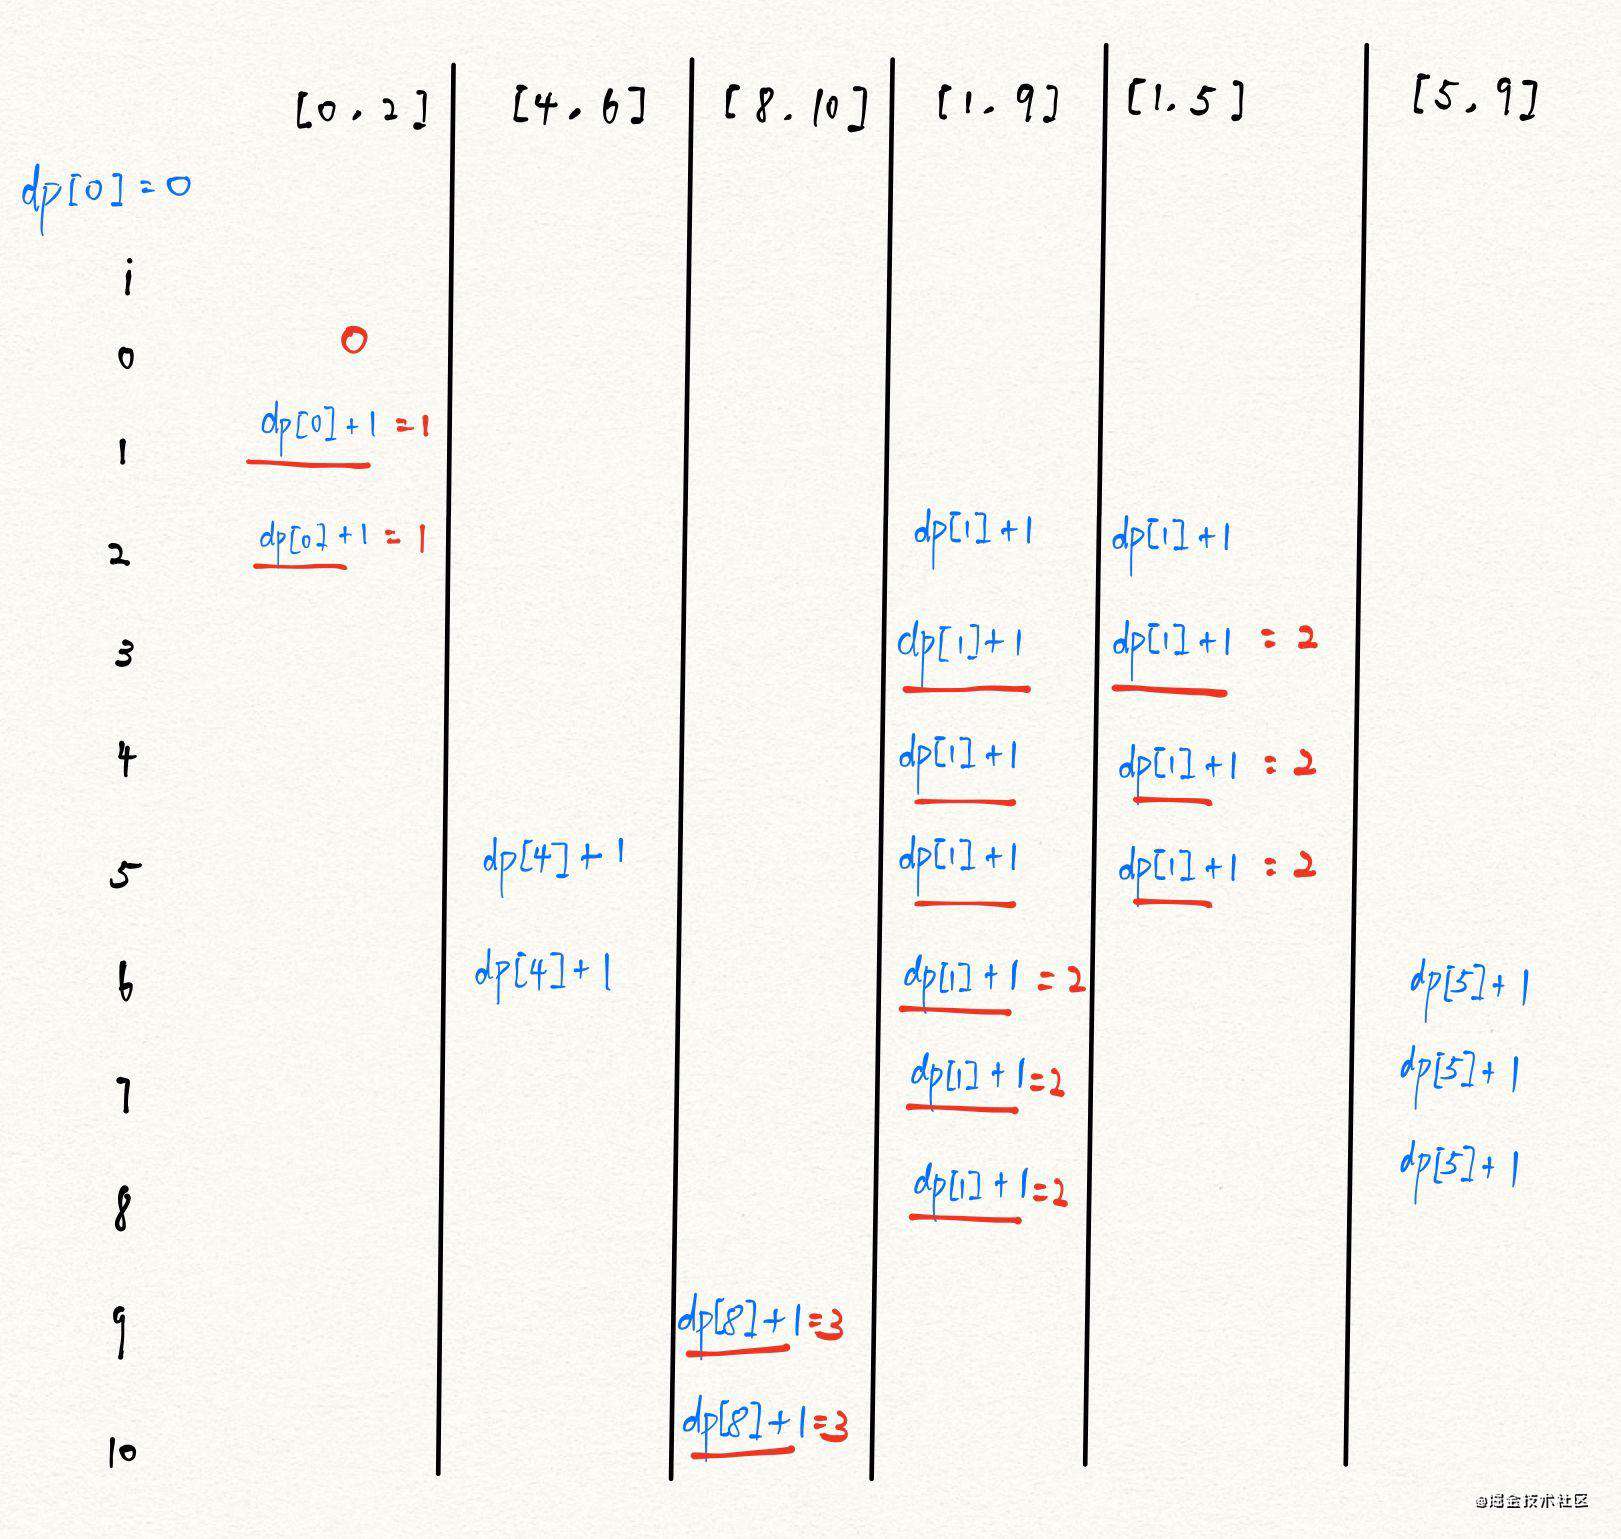 [0,2] [4,6] [8,10] [1,9] [1,5] [5,9]
dp[0]=0
i
0 0
1 dp[0]+1=1
2 dp[0]+1=1 dp[1]+1 dp[1]+1
3 dp[1]+1 dp[1]+1=2
4 dp[1]+1 dp[1]+1=2
5 dp[4]+1 dp[1]+1 dp[1]+1=2
6 dp[4]+1 dp[1]+1=2 dp[5]+1
7 dp[1]+1=2 dp[5]+1
8 dp[1]+1=2 dp[5]+1
9 dp[8]+1=3
10 dp[8]+1=3
@掘金技术社区